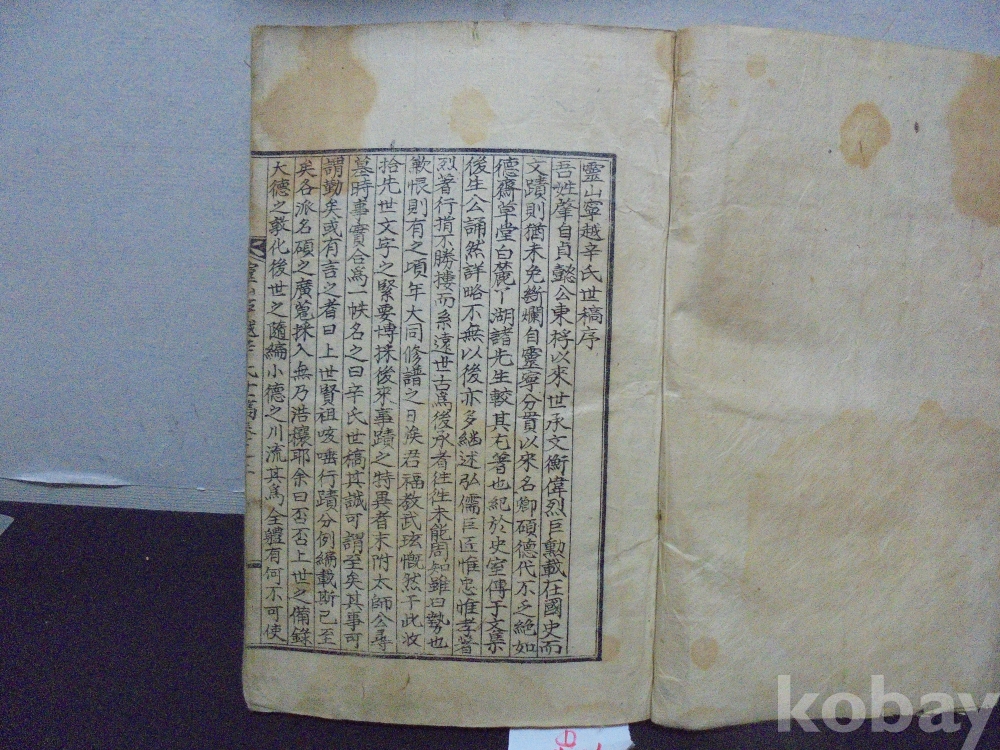 靈山寧越辛氏世稿序
吾姓肇自貞懿公東桴以來世承文衡偉烈巨勳載在國史而
文蹟則猶未免斷爛自靈寧分貫以來名卿碩德代不乏絶如
德齋草堂白麓丫湖諸先生較其尤著也紀於史室傳于文集
後生公誦然詳略不無以後亦多繼述弘儒巨匠惟忠惟孝著
烈著行指不勝摟而系遠世古爲後承者往往未能周知雖曰勢也
歎恨則有之頃年大同修譜之日族君福教武玹慨然于此收
拾先世文字之緊要博採後來事蹟之特異者末附太師公尋
墓時事實合爲一帙名之曰辛氏世稿其誠可謂至矣其事可
謂勤矣或有言之者曰上世賢祖咳唾行蹟分例編載斯已至
矣各派名碩之廣蒐採入無乃浩穰耶余曰否否上世之備錄
大德之敦化後世之隨編小德之川流其爲全體有何不可使
kobay